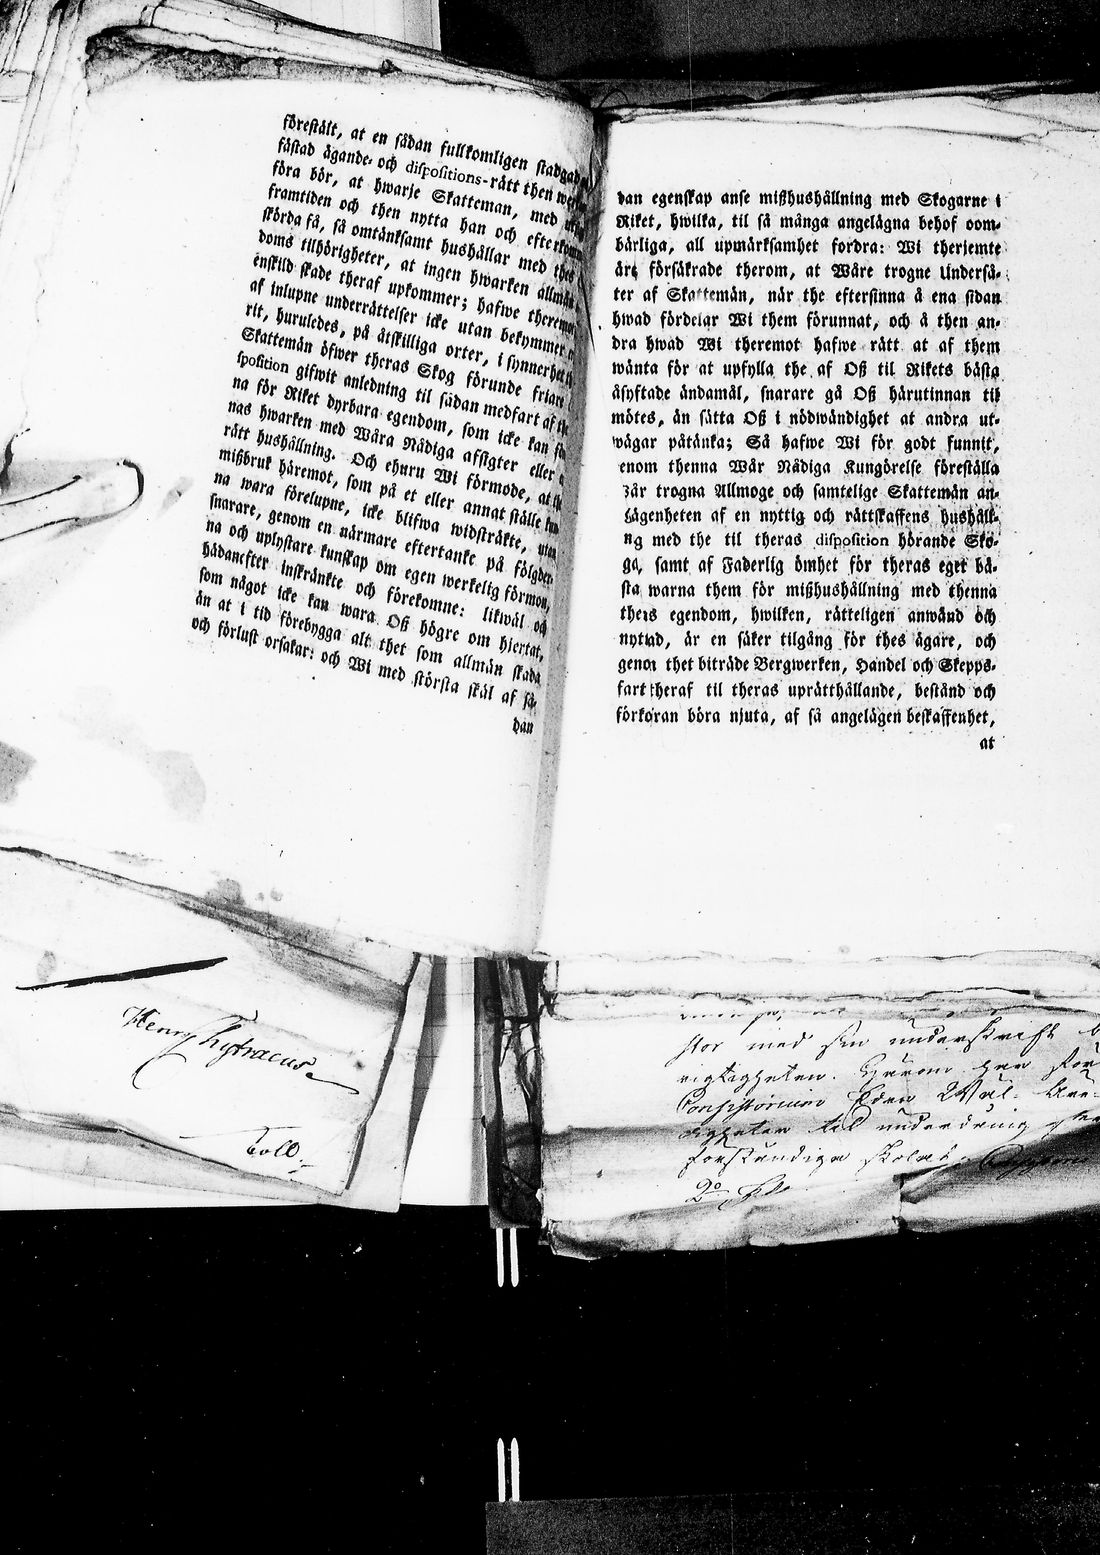 förestält, at en sådan fullkomligen stadgad
fästad ägande- och dispositions-rätt then
föra bör, at hwarje Skatteman, med
framtiden och then nytta han och
skörda få, så omtänksamt hushållar med thes
doms tilhörigheter, at ingen hwarken allmän
enskild skade theraf upkommer; hafwe theremot
af inlupne underrättelser icke utan bekymmer
rit, huruledes, på åtskilliga orter, i synnerhet
Skattemän öfwer theras Skog förunde friare
sposition gifwit anledning til sådan medfart af
na för Riket dyrbara egendom, som icke kan
nas hwarken med Wåra Nådiga afsigter eller
rätt hushållning. Och ehuru Wi förmode, at
mißbruk häremot, som på et eller annat ställe
na wara förelupne, icke blifwa widsträkte, utan
snarare, genom en närmare eftertanke på
na och uplystare kunskap om egen werkelig förmon,
hädanefter inskränkte och förekomne: likwäl och
som något icke kan wara Oß högre om hiertat,
än at i tid förebygga alt thet som allmän skada
och förlust orsakar: och Wi med största skäl af så-
dan
dan egenskap anse mißhushållning med Skogarne i
Riket, hwilka, til så många angelägna behof oom-
bärliga, all upmärksamhet fordra: Wi therjemte
äre försäkrade therom, at Wåre trogne Underså-
ter af Skattemän, när the eftersinna å ena sidan
hwad fördelar Wi them förunnat, och å then an-
dra hwad Wi theremot hafwe rätt at af them
wänta för at upfylla the af Oß til Rikets bästa
åsyftade ändamål, snarare gå Oß härutinnan til
mötes, än sätta Oß i nödwändighet at andra ut-
wägar påtänka; Så hafwe Wi för godt funnit,
enom thenna Wår Nådiga Kungörelse föreställa
år trogna Allmoge och samtelige Skattemän an-
lägenheten af en nyttig och rättskaffens hushåll-
ng med the til theras disposition hörande Sko-
ga, samt af Faderlig ömhet för theras eget bä-
sta warna them för mißhushållning med thenna
egendom, hwilken, rätteligen anwänd och
är en säker tilgång för thes ägare, och
genom thet biträde Bergwerken, Handel och Skepps-
fart theraf til theras uprätthållande, bestånd och
förkofran böra njuta, af så angelägen beskaffenhet,
at
Henr Chytraeus
med sin underskrift
rigtigheten.
Consistorium
til underdånig
2o